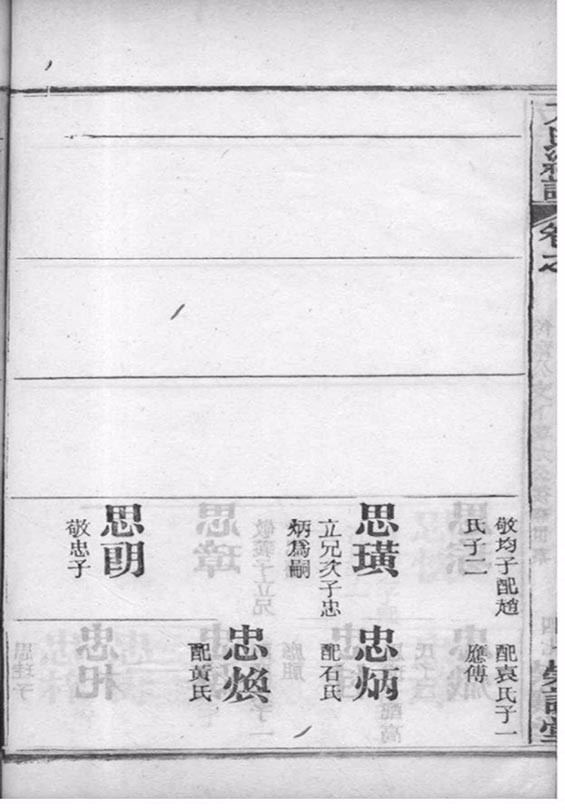 卷之
敬均子配趙
氏子二
思璜
立兄次子忠
炳爲嗣
思朙
敬忠子
配袁氏子一
應傅
忠炳
配石氏
忠煥
配黃氏